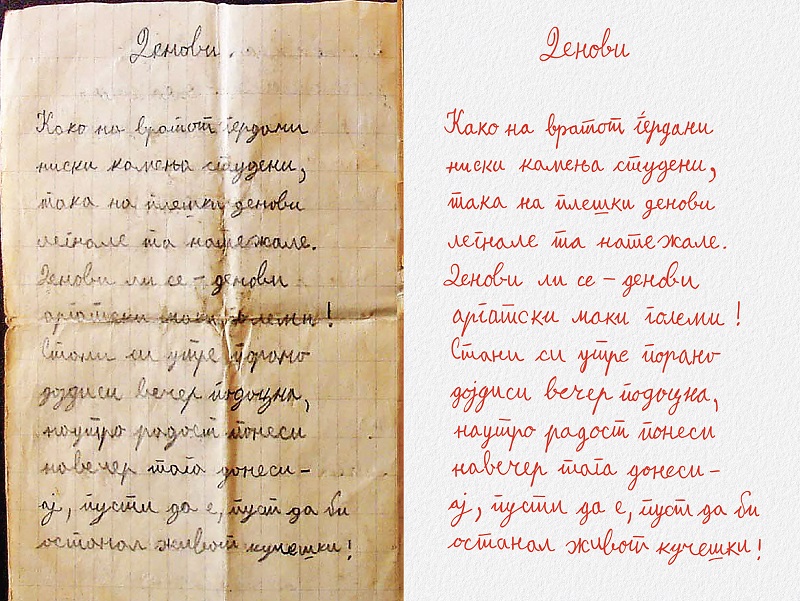 Денови
Како на вратот ѓердани
ниски камења студени,
така на плешки денови
легнале та натежале.
Денови ли се – денови
аргатски маки големи!
Стани си утре порано
дојдиси вечер подоцна,
наутро радост понеси
навечер тага донеси –
ај, пусти да е, пуст да би
останал живот кучешки!
Денови
Како на вратот ѓердани
ниски камења студени,
така на плешки денови
легнале та натежале.
Денови ли се – денови
аргатски маки големи!
Стани си утре порано
дојдиси вечер подоцна,
наутро радост понеси
навечер тага донеси –
ај, пусти да е, пуст да би
останал живот кучешки!